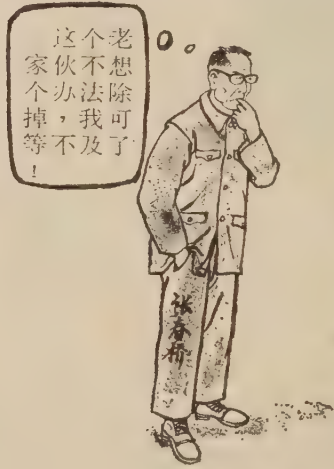 这个老
家伙不想
个办法除
掉，我可
等不及了
！
张春桥